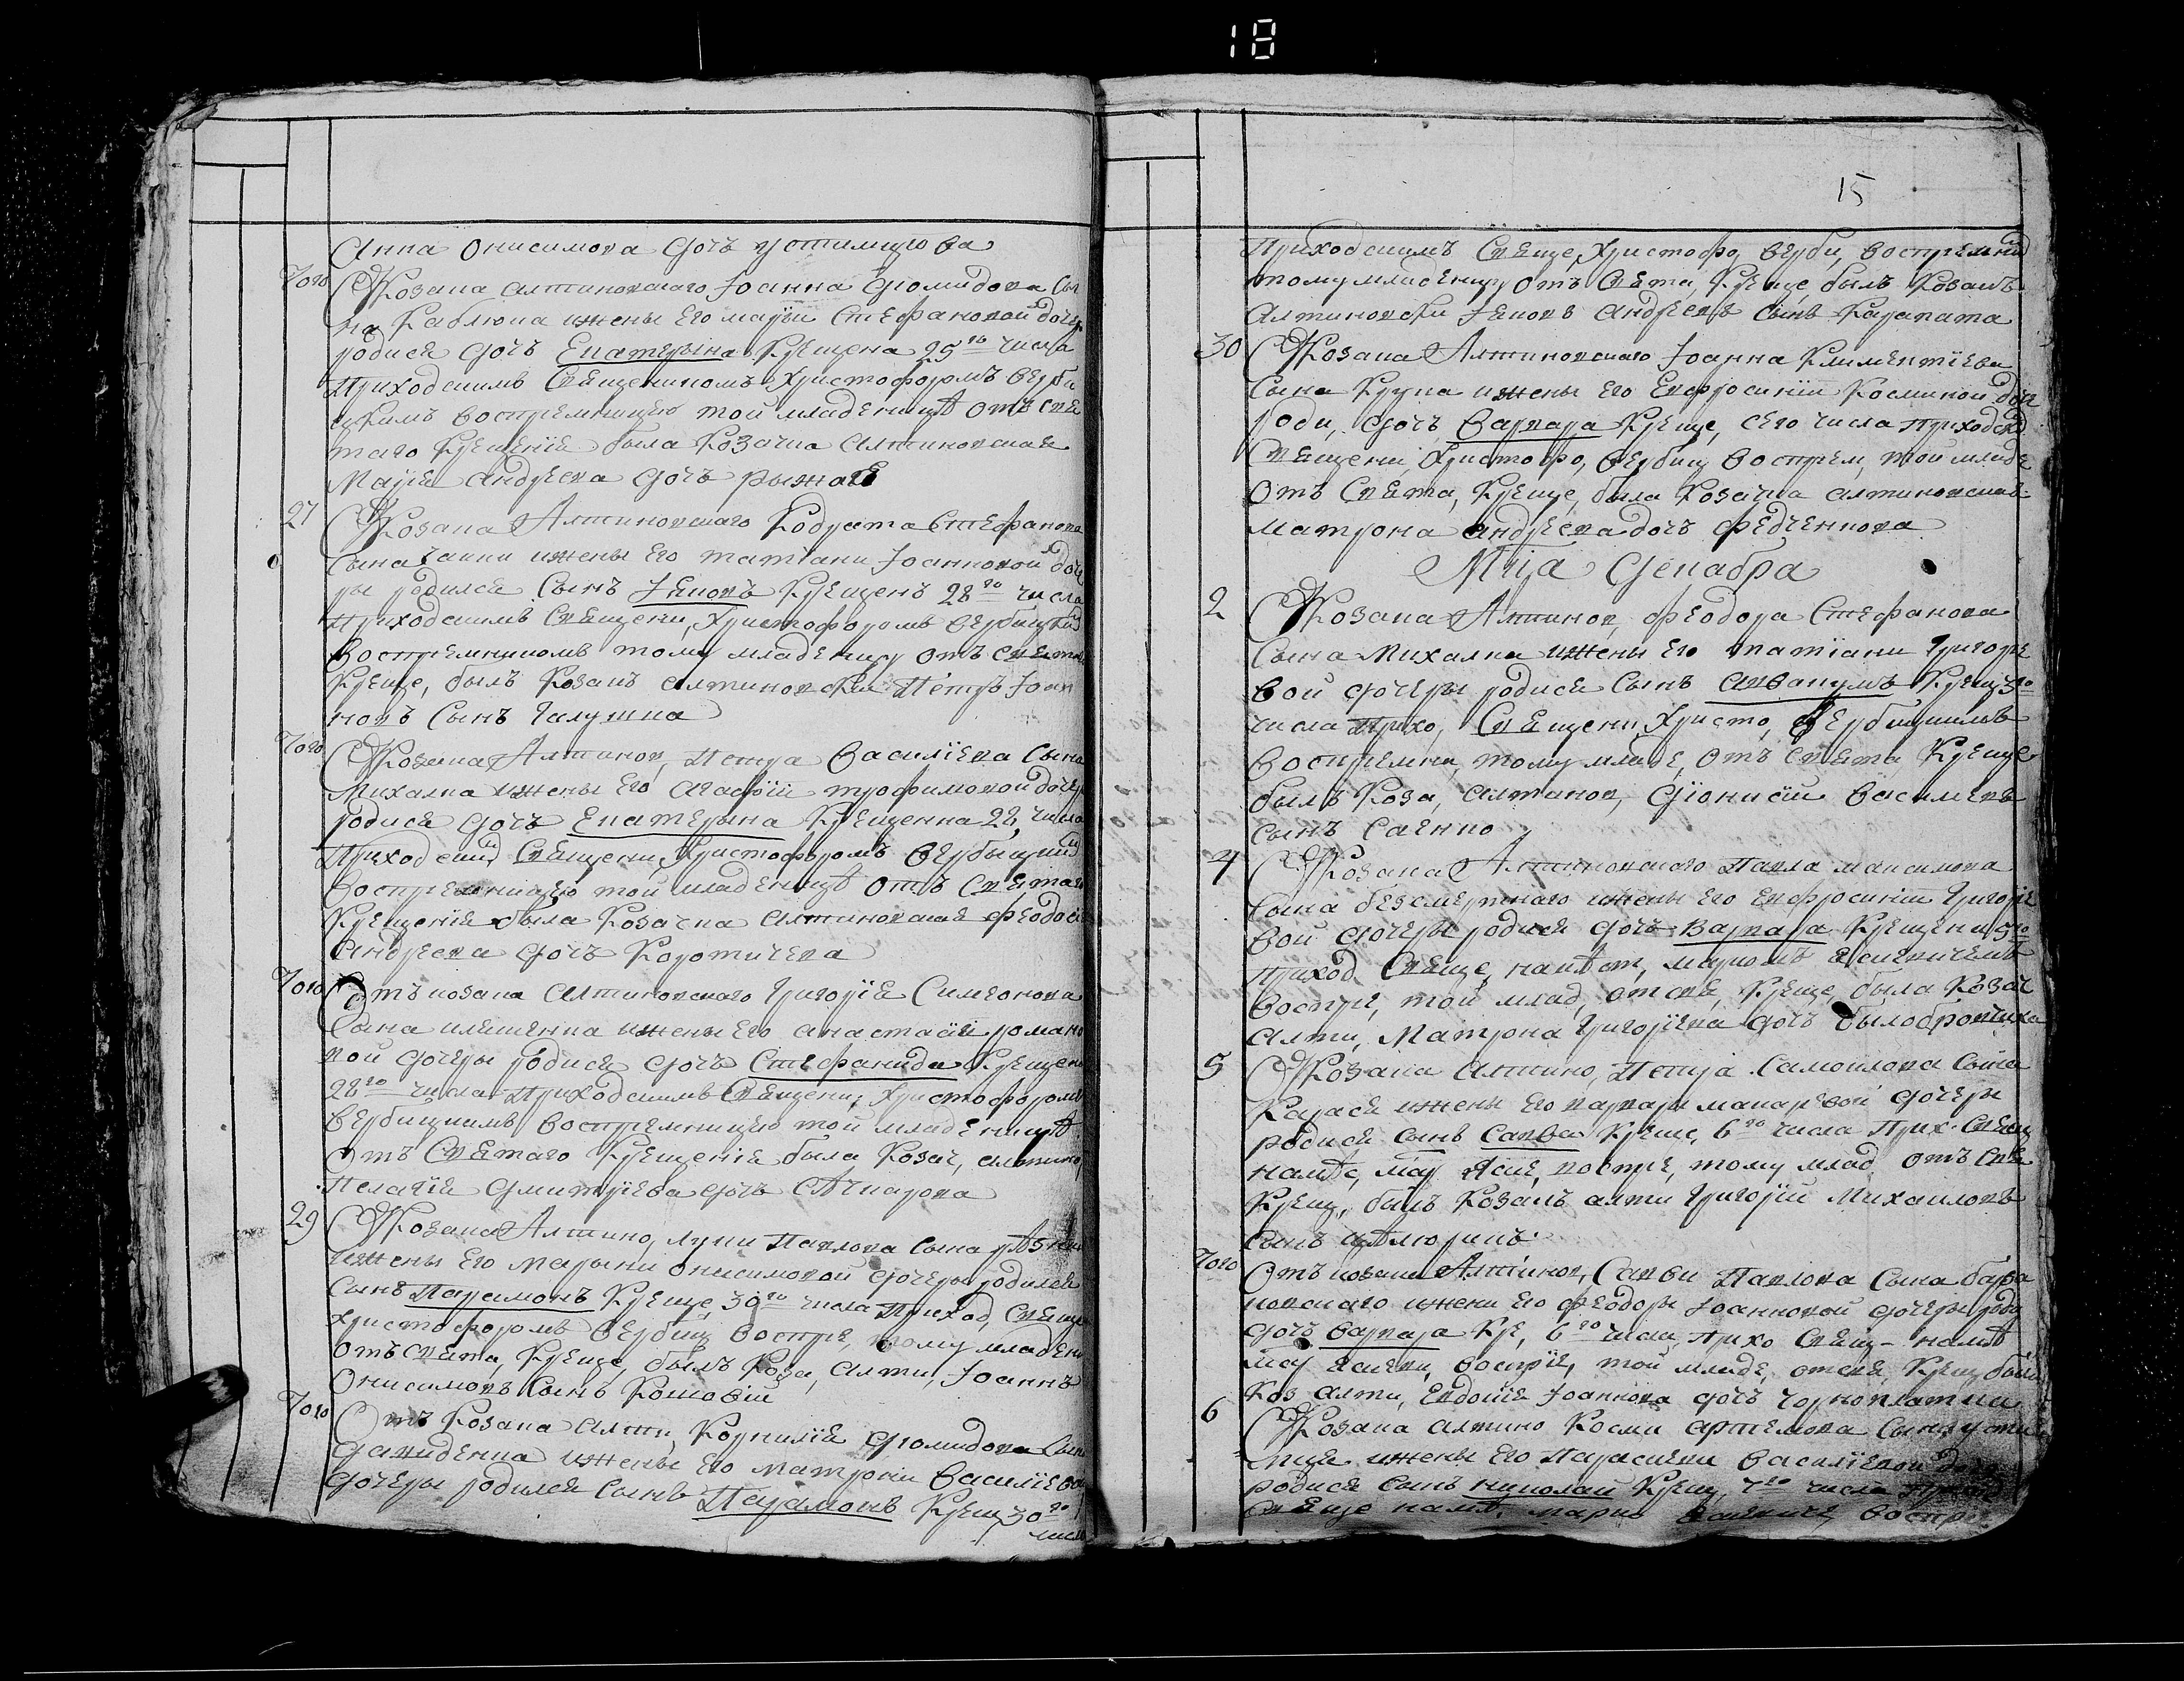 18
Анна Онисимова дочь Устимцова
Того
У Козака алтиновского Іоанна Діомидова сы
на Каблюка ижены Его маріи Стефановой дочер
родися дочь Екатерина Крещена 25го числа
Приходскимъ Священикомъ Христофоромъ верби
цкимъ восприемницею той младеницѣ отъ свя
таго Крещенія была Козачка алтиновская
Марія андреева дочь рыжа
27
У Козака Алтиновского Кодрата Стефанова
сына чайки ижены Его татіани Іоанновой доче
ры родился сынъ Іяковъ Крещенъ 28го числа
Приходскимъ Священи, Христофоромъ вербицким
восприемникомъ тому младенцу отъ свята
Креще, былъ Козакъ алтиновски Петръ Іоан
новъ сынъ Галушка
Того
У Козака Алтинов, Петра Василіева сына
Михалка ижены Его агафіи трофимовой дочер
родися дочь Екатерына Крещенна 28, числа
Приходским Священи, Христофоромъ вербыцким
восприемницею той младеницѣ отъ святаго
Крещенія была Козачка алтиновская феодосія
андреева дочь Коротичева
Того
Отъ козака алтиновского Григорія Симеонова
сына илященка ижены Его анастасіи романо
вой дочеры родися дочь Стефанида Крещена
28го числа Приходскимъ Священи, Христофоромъ
вербицкимъ восприемницею той младеницѣ
отъ Святаго Крещенія была Козач, алтино,
Пелагія Дмитріева дочь
29
У Козака Алтино, луки Павлова сына
ижены Его марыни онисимовой дочеры родился
сынъ Парамонъ Креще, 30го числа Приход, Свяще
христофоромъ вербиц воспре, тому младен
отъ свята, Креще, былъ Коза, алти, Іоаннъ
Онисимовъ сынъ Кошовій
Того
Отъ Козака алти, Корнилія Діомидова сына
Давиденка ижены Его матроні василіевой
дочеры родился сынъ Парамонъ Крещ, 30го
числа
15
Приходскимъ Свяще, Христофо, верби, восприемник
тому младенцу отъ Свята, Креще, былъ Козакъ
алтиновски Іяковъ андреевъ сынъ Карапата
30
У Козака Алтиновского Іоанна Климентіева
сына Крупа ижены Его Евфросиніи Косминой доч
роди, дочь Варвара Креще, сего числа приходск
Священи, Христофо, вербиц восприем, той младе
отъ Свята, Креще, была Козачка алтиновская
матрона андреева дочь федченкова
Мца Декабра
2
У Козака Алтинов, феодора Стефанова
сына Михалка ижены Его татіани Григорие
вой дочеры родися сынъ аввакумъ Крещ, 3го
числа Прихо, Священи, Христо, вербицкимъ
восприемни, тому младе, отъ свята, Креще
былъ Коза, алтинов, Діонисій василиевъ
сынъ Саенко
4
У Козака Алтиновского Павла максимова
сына безсмертнаго ижены Его Евфросиніи Григоріе
вой дочеры родися дочь Варвара Крещена 5го
приход Свяще, намѣст, маркомъ
воспри, той млад, отсвя, Креще, была Козач
алти, Матрона Григоріева дочь
5
У Козака алтино, Петра Самоилова сына
Карася ижены Его варвары макаревой дочеры
родися сынъ Савва Креще, 6го числа Прих. Свящ
намѣс, мар воспре, тому млад отъ свя
Крещ, былъ Козакъ алти Григорій Михаиловъ
сынъ
Того
Отъ козака Алтинов, Савви Павлова сына бара
новского ижени Его феодоры Іоанновой дочеры роди
дочь варвара Кре, 6го числа, прихо Свящ- намѣ
мар воспріе, той младе, отсвя, Крещ была
Коз алти, Евдокія Іоаннова дочь
6
У Козака алтино Косми артемова сына усти
мца ижены Его Параскеви василіевой доче
родися сынъ николай Крещ, 7го числа Приход
Свяще намѣ, марко воспр